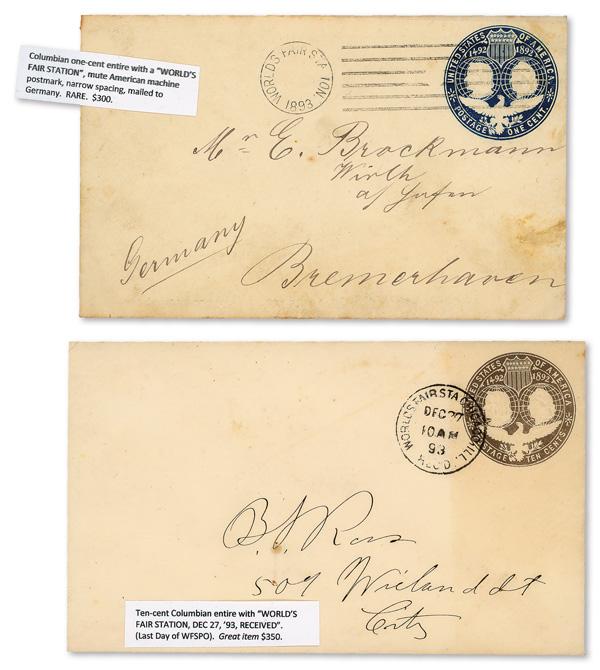 Columbian one-cent entire with a "WORLD'S
FAIR STATION", mute American machine
postmark, narrow spacing, mailed to
Germany. RARE. $300.
WORLD'S FAIR STATION
1893
UNITED STATES OF AMERICA
1492 1892
POSTAGE ONE CENT
Mr E. Brockmann
Wirth
a/
Germany
Bremerhaven
WORLD'S FAIR STA CHICAGO, ILL.
DEC 27
10 AM
93
REC'D.
UNITED STATES OF AMERICA
1492 1892
POSTAGE TEN CENTS
B. J. Ross
509 Wieland St
City
Ten-cent Columbian entire with "WORLD'S
FAIR STATION, DEC 27, '93, RECEIVED".
(Last Day of WFSPO). Great item $350.